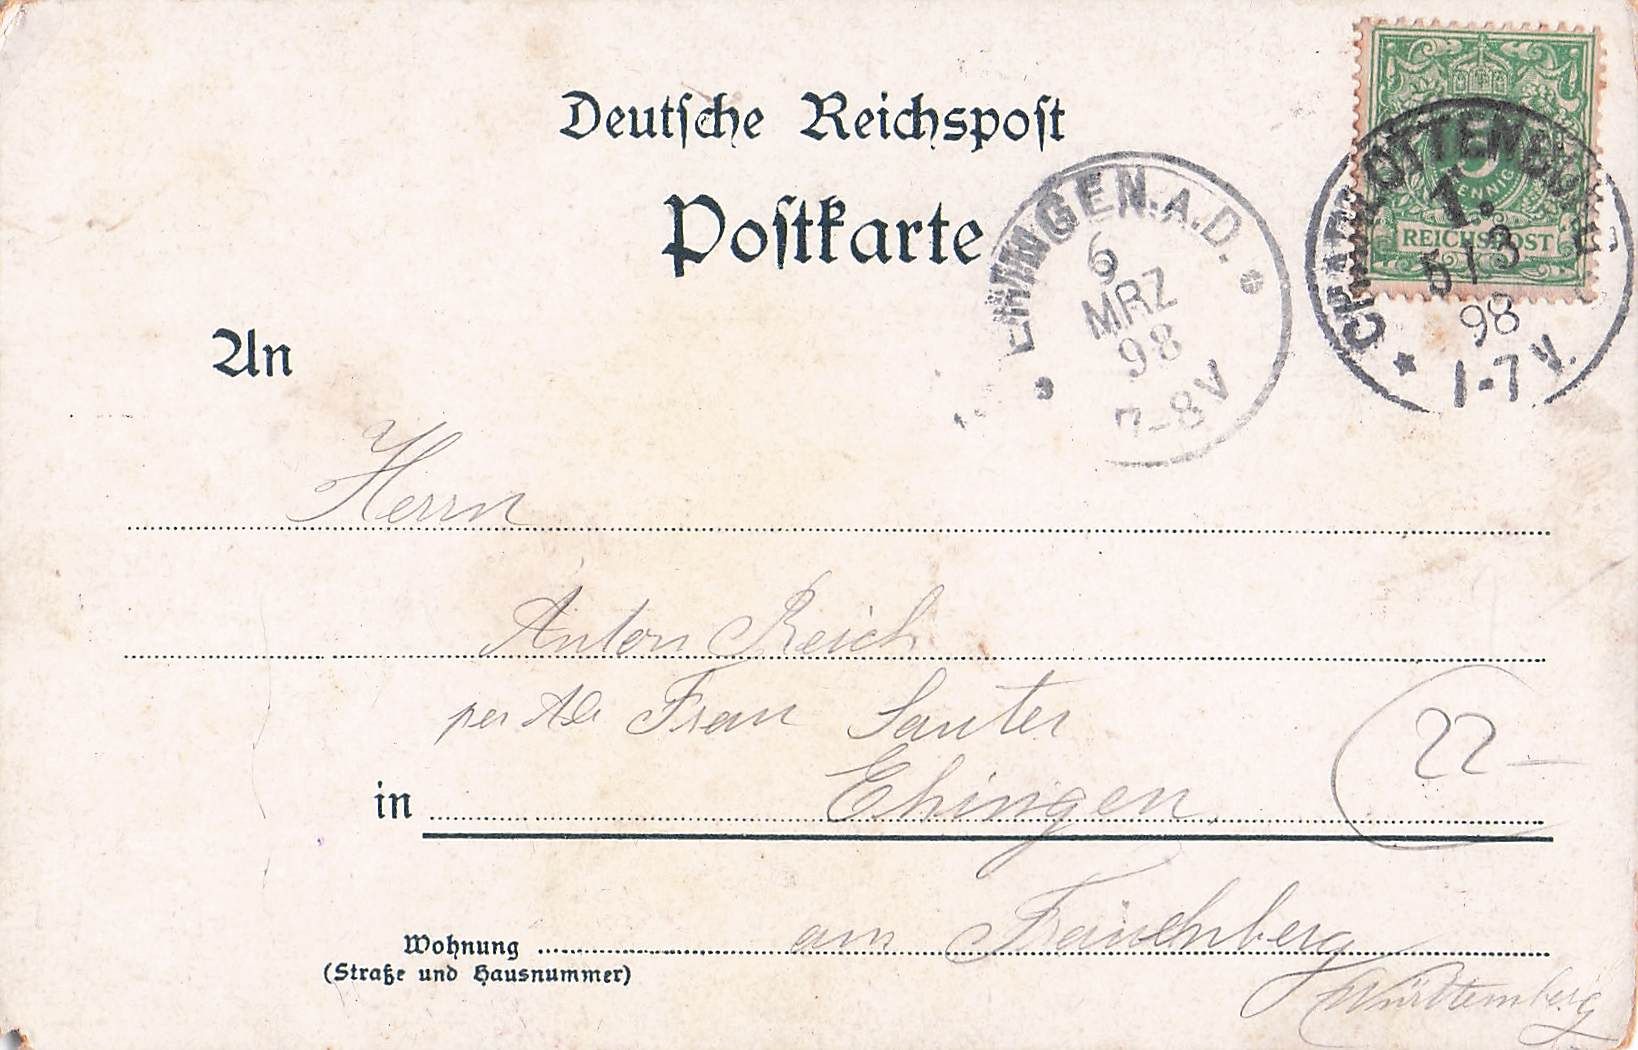 Deutsche Reichspost
Postkarte
5
PFENNIG
REICHSPOST
CHARLOTTENBURG
1.
5 / 3
98
1-7 V.
EHINGEN.A.D.
6
MRZ
98
7-8V
An
Herrn
Anton Reich
per Ad Frau Sauter
in Ehingen
22 –
Wohnung am Frauenberg
(Straße und Hausnummer)
Württemberg